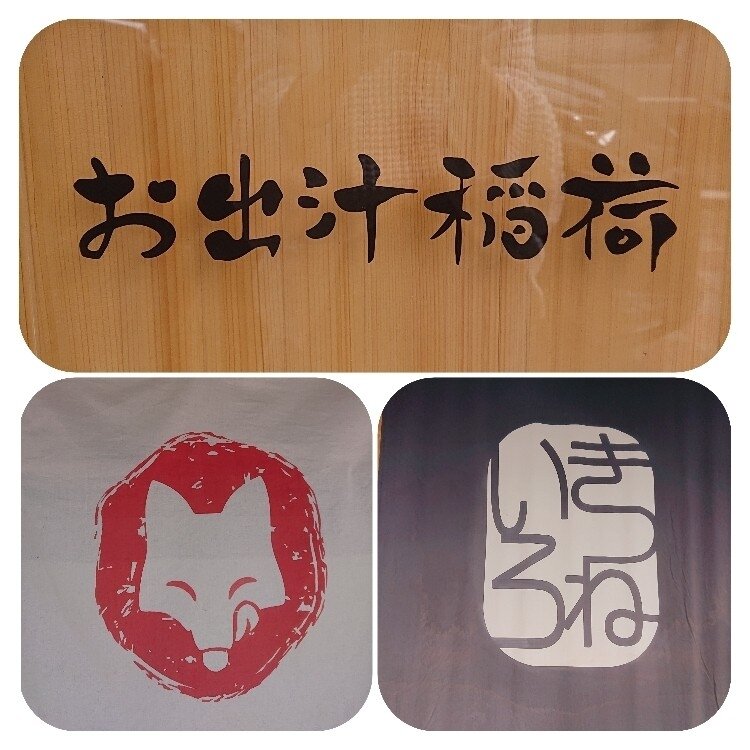 お出汁稲荷
きつね
いろ